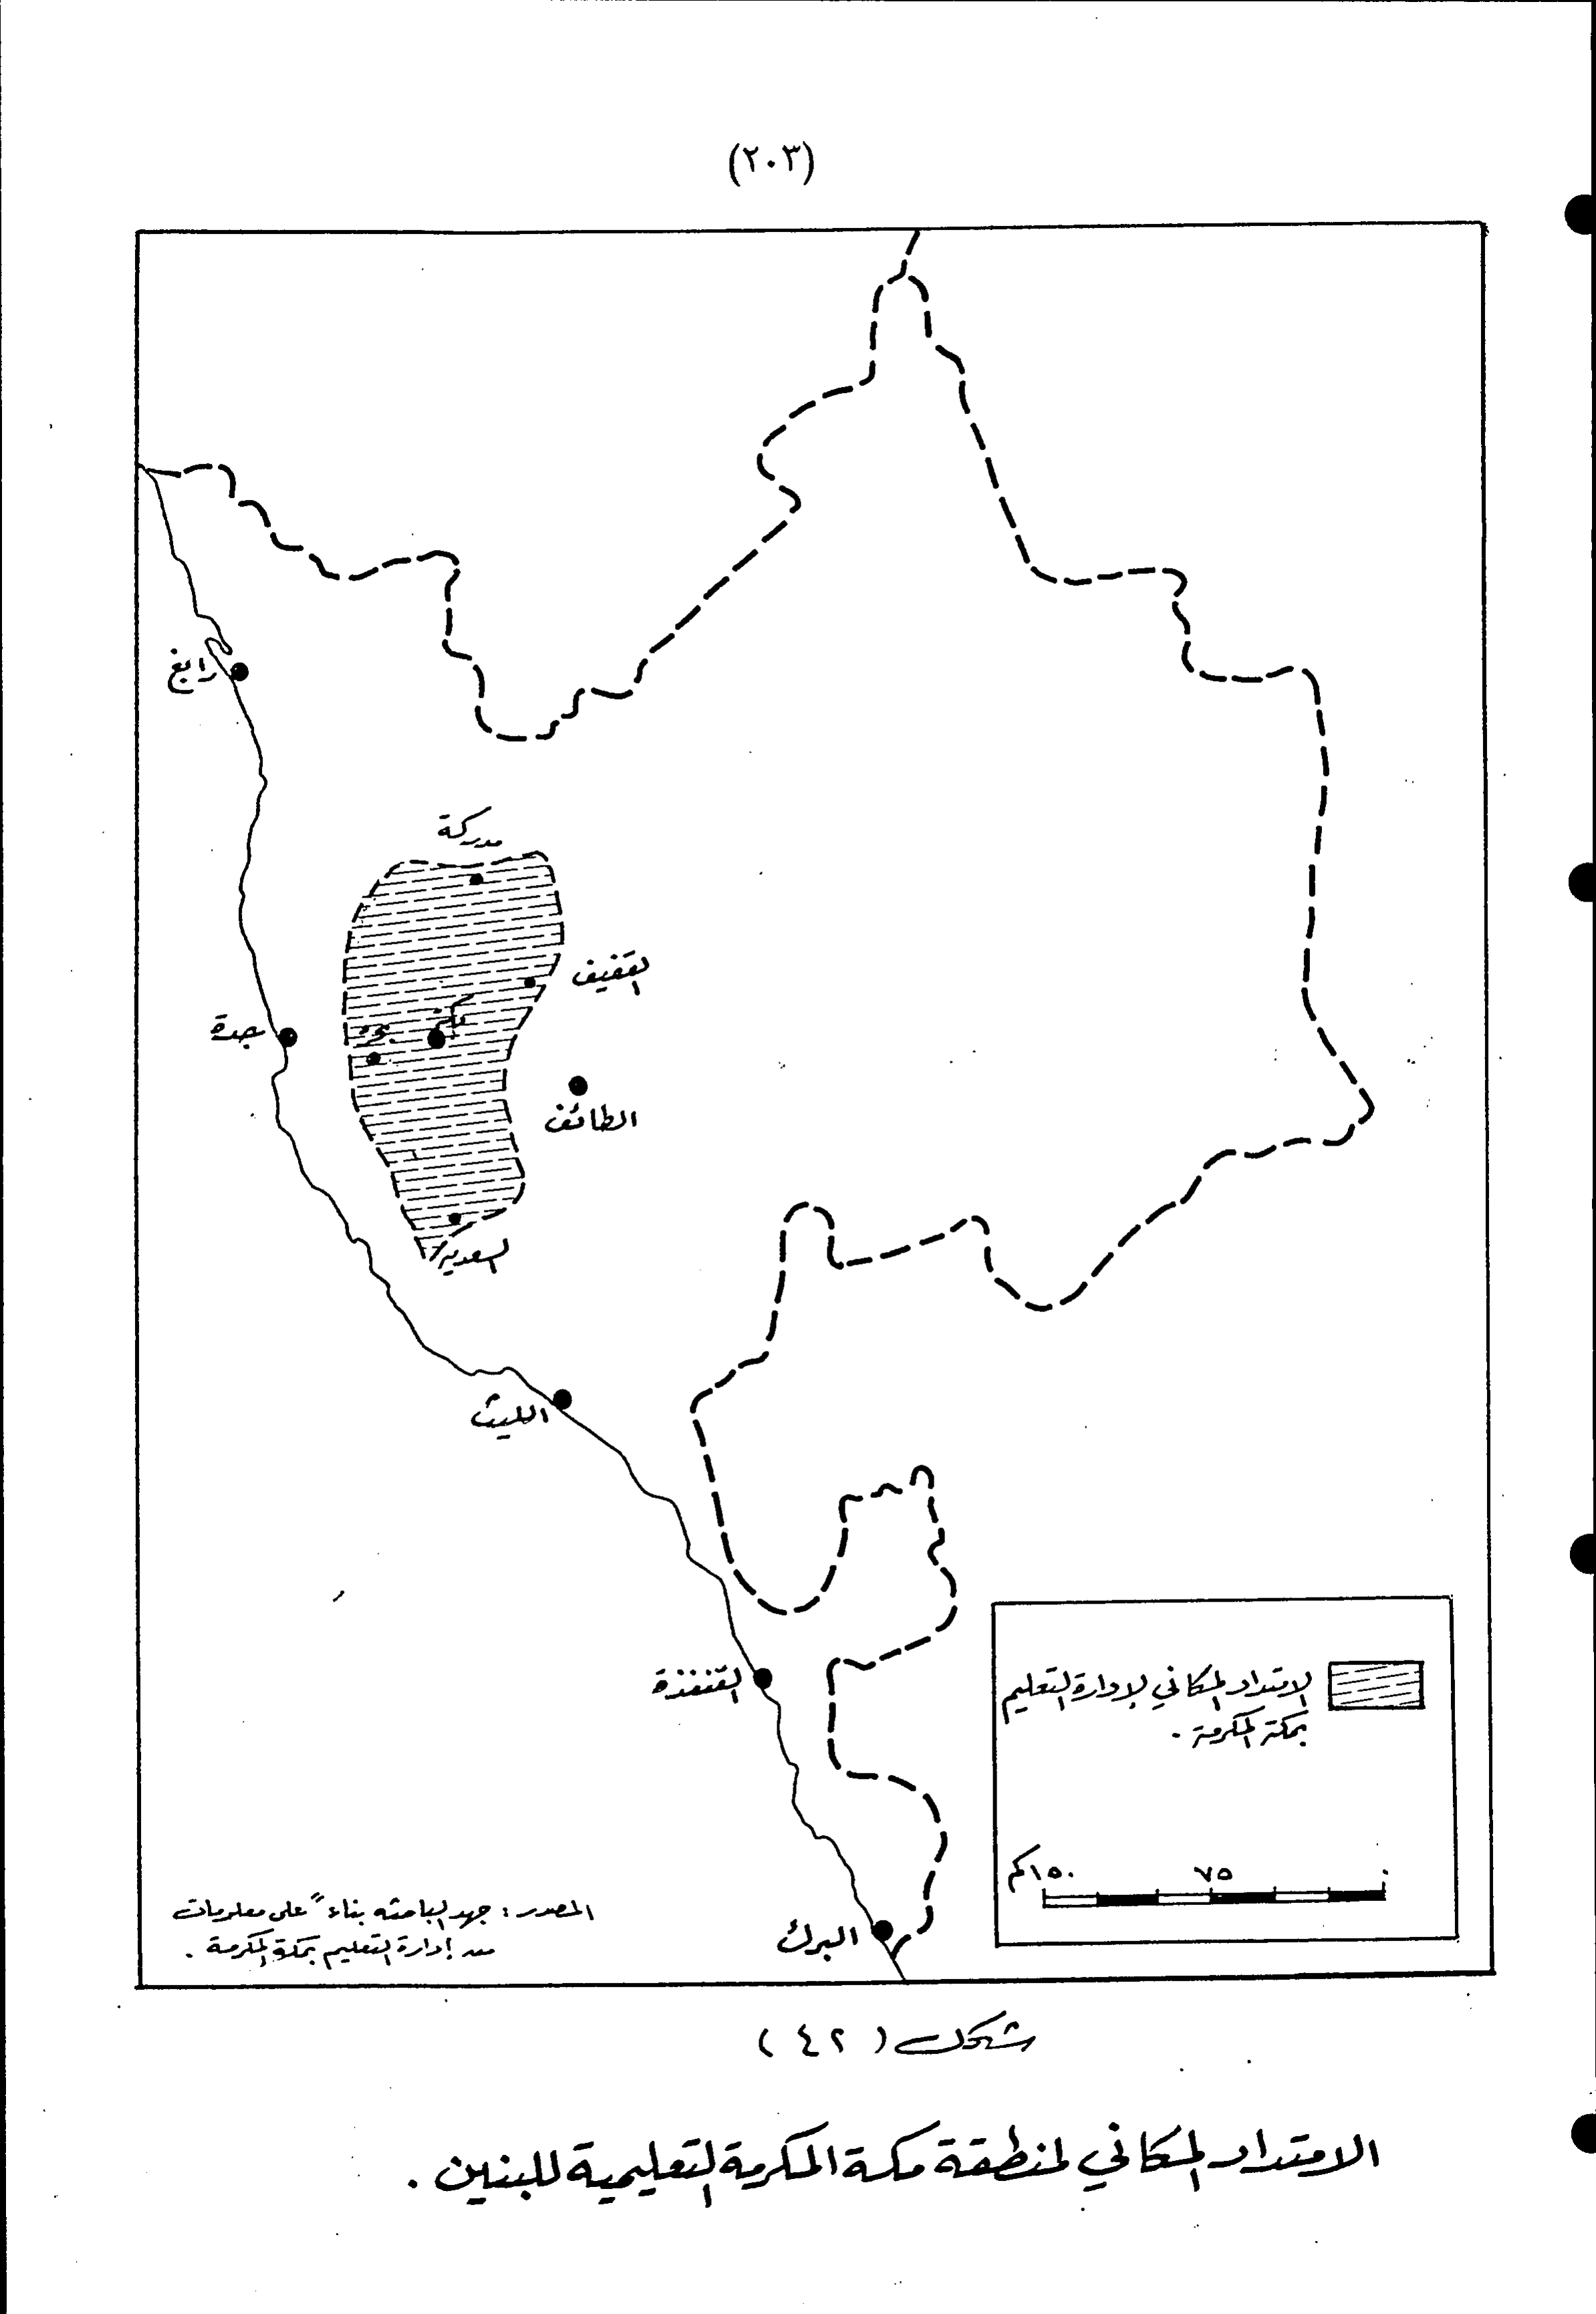 (٢٠٣)
رابغ
مدركة
القفيف
مكة
بحرة
جدة
الطائف
السعدية
الليث
القنفذة
البرك
الامتداد المكاني لإدارة التعليم
بمكة المكرمة .
١٥٠كم ٧٥ ٠
المصدر : جهد الباحثه بناءً على معلومات
من إدارة التعليم بمكة المكرمة .
شكل ( ٤٢ )
الامتداد المكاني لمنطقة مكة المكرمة التعليمية للبنين .